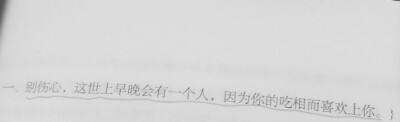 一、别伤心，这世上早晚会有一个人，因为你的吃相而喜欢上你。